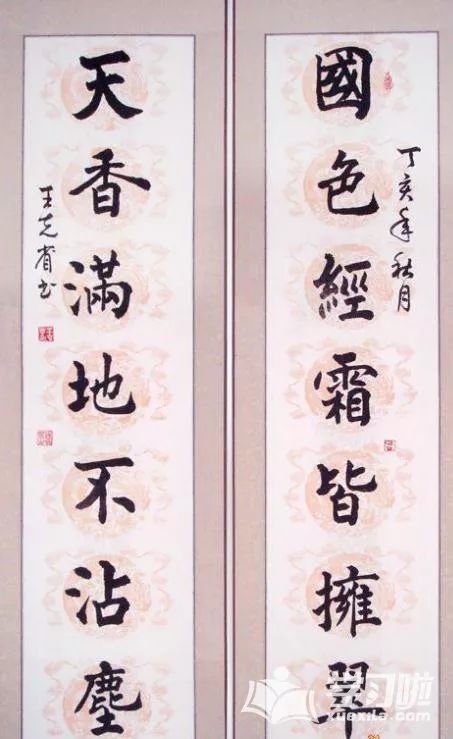 丁亥年秋月
國色經霜皆擁翠
天香滿地不沾塵
王克省书
学习啦
xuexila.com